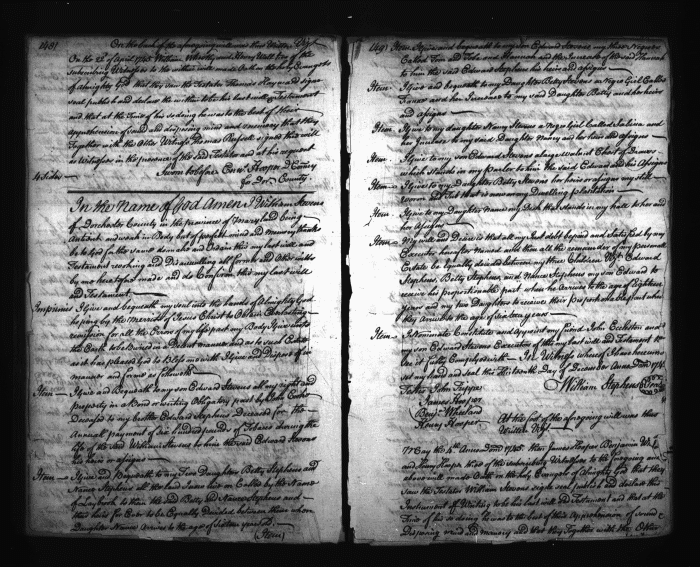 1481 On the back of the aforegoing will was thus Written Viz.t
On the 22.d april 1745 William Whorley and Henry Wall two of the
Subscribing Witnesses to the within will made Oath on the holy Evangels
of almighty God that they saw the Testator Thomas Hayward sign
seal publish and declare the within Will his last will & Testament
and that at the time of his so doing he was to the best of their
apprehension of sound and disposing mind and memory that they
Together with the other Witness Thomas signed this will
as Witnesses in the presence of the said Testator and at his request
4 Sides Sworn to before Hooper D County
for Dor. County
In the Name of God Amen I William Stevens
of Dorchester County in the province of Maryland being
and weak in Body but of perfect mind and memory thanks
be to God for the same do make and Ordain this my last will and
Testament revoking and Disanulling all former and Other wills
by me heretofore made and do Confirm this my last will
and Testament
Imprimis I Give and bequeath my soul into the hands of Almighty God
hoping by the Merricks of Jesus Christ to Obtain Everlasting
remission for all the Errors of my life past my Body I give unto
the Earth to be Buried in a Decent manner and as to such Estate
as it has pleased God to Bless me with I give and Dispose of in
manner and form as followeth
Item I Give and Bequeath to my son Edward Stevens all my right and
property in a Bond or writing Obligatory past by John
Deceased to my brother Edward Stephens Deceased for the
Annual payment of six hundred pounds of Tobacco during the
life of the said William Stevens to him the said Edward Stevens
his heirs or assigns
Item I Give and Bequeath to my Two Daughters Betty Stephens and
Nancy Stephens all the land I now live on Called by the Name
of to them the said Betty and Nancy Stephens and
their heirs for Ever to be Equally Divided between them when
Daughter Nancy arrives to the age of Sixteen years
(Item)
1491 Item I give and bequeath to my son Edward Stevens my three Negroes
Called Tom and Toby and Hannah and the Increase of the said Hannah
to him the said Edward Stephens his heirs and assigns
Item I Give and bequeath to my Daughter Betty Stevens a Negro Girl Called
and her Increase to my said Daughter Betty and her heirs
and assigns
Item I give to my daughter Nancy Stevens a Negro Girl Called
and her Increase to my said Daughter Nancy and her heirs and assigns
Item I give to my son Edward Stevens a large Walnut Chest of Drawers
which stands in my parlor to him the said Edward and his assigns
Item I give to my Daughter Betty Stevens her heirs or assigns my
that stands in my Dwelling plantation
Item I give to my Daughter Nancy my Desk that stands in my hall to her and
her assigns
Item My will and Desire is that all my just debts be paid and satisfied by my
Executor hereafter Named and then all the remainder of my personal
Estate be Equally devided between my three Children Viz.t Edward
Stephens, Betty Stephens, and Nancy Stephens my son Edward to
receive his proportionable part when he arrives to the age of Eighteen
and my two Daughters to receive their proportionable part when
they arrive to the age of sixteen years
Item I Nominate Constitute and appoint my friend John Eccleston and
Edward Stevens Executors of this my last will and Testament
In Witness whereof I have hereunto
set my hand and seal the thirteenth Day of December Anno Dom 1744
Testes John Tripper William Stephens
James Hooper
Benj.a Wheeland At the foot of the aforegoing will was thus
Henry Hooper Written Viz.t
May the 4th Anno Dom 1745 then James Hooper Benjamin
and Henry Hooper three of the subscribing Witnesses to the foregoing and
above will made Oath on the holy Evangels of Almighty God that they
saw the Testator William Stevens sign seal publish and declare this
Instrument of Writing to be his last will and Testament and that at the
Time of his so doing he was to the best of their Apprehension of sound &
Disposing mind and memory and that they Together with the Other